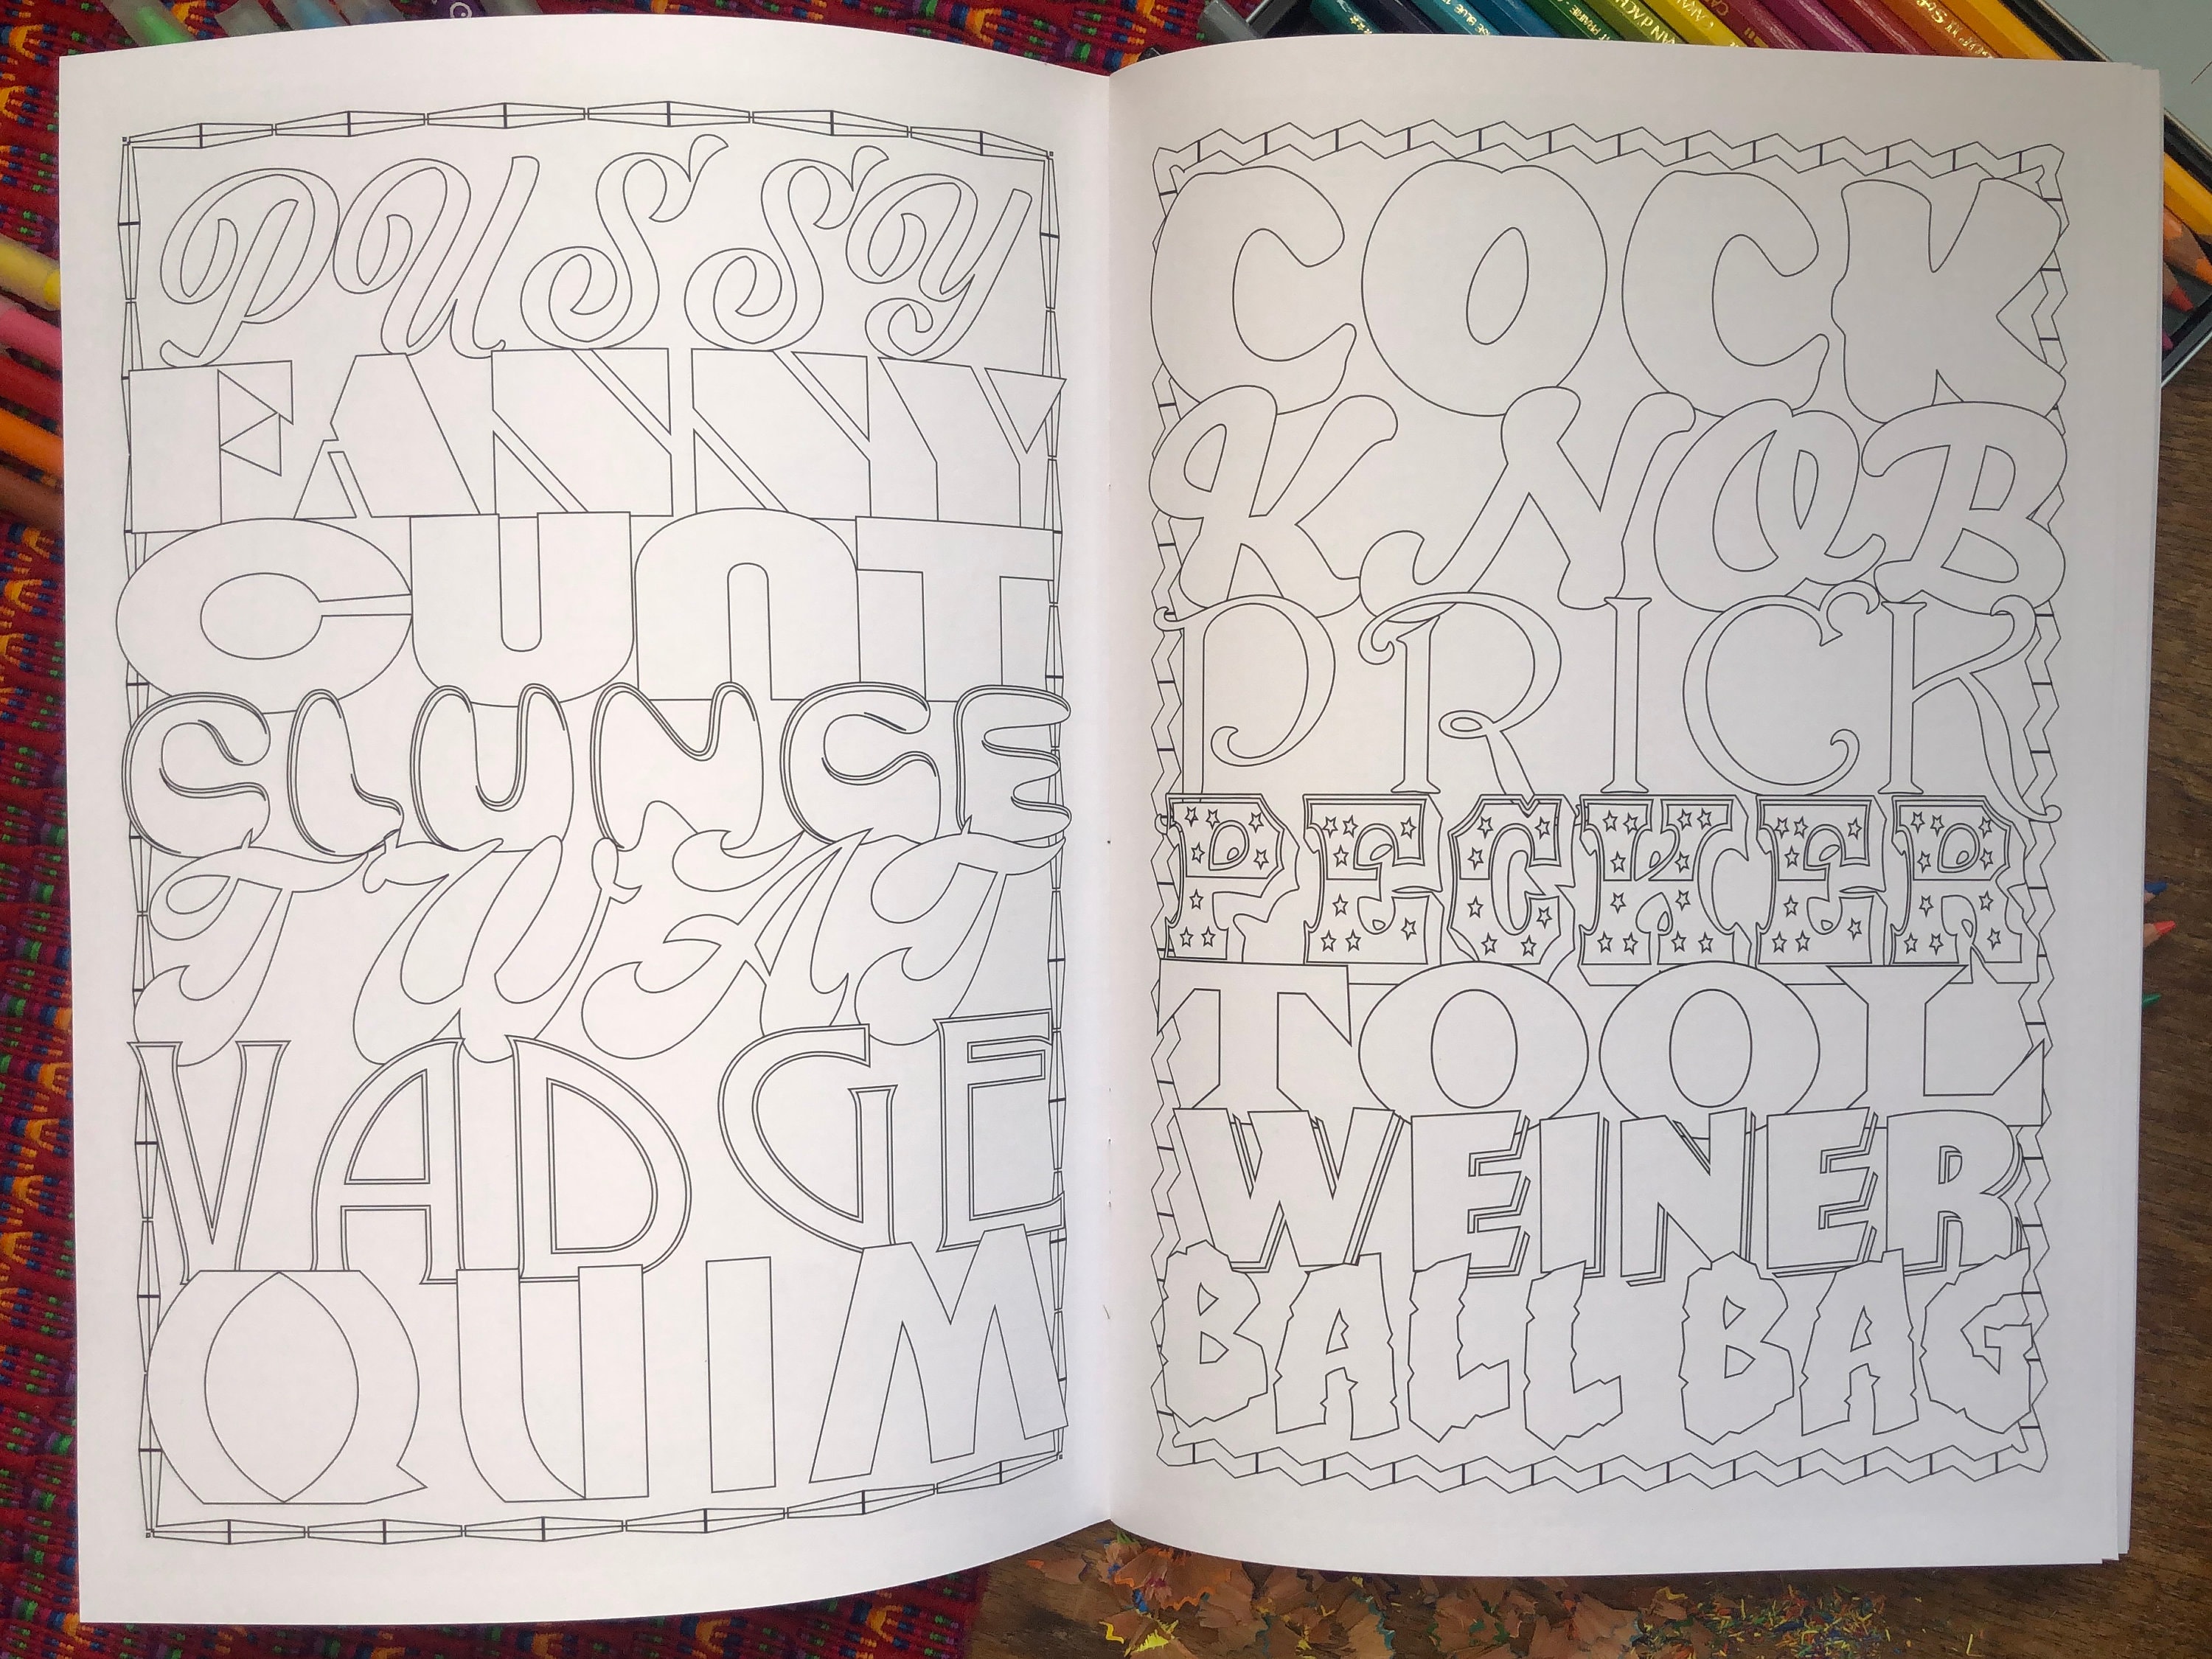 PUSSY
FANNY
CUNT
CLUNGE
TWAT
VADGE
QUIM
COCK
KNOB
PRICK
PECKER
TOOL
WEINER
BALL BAG